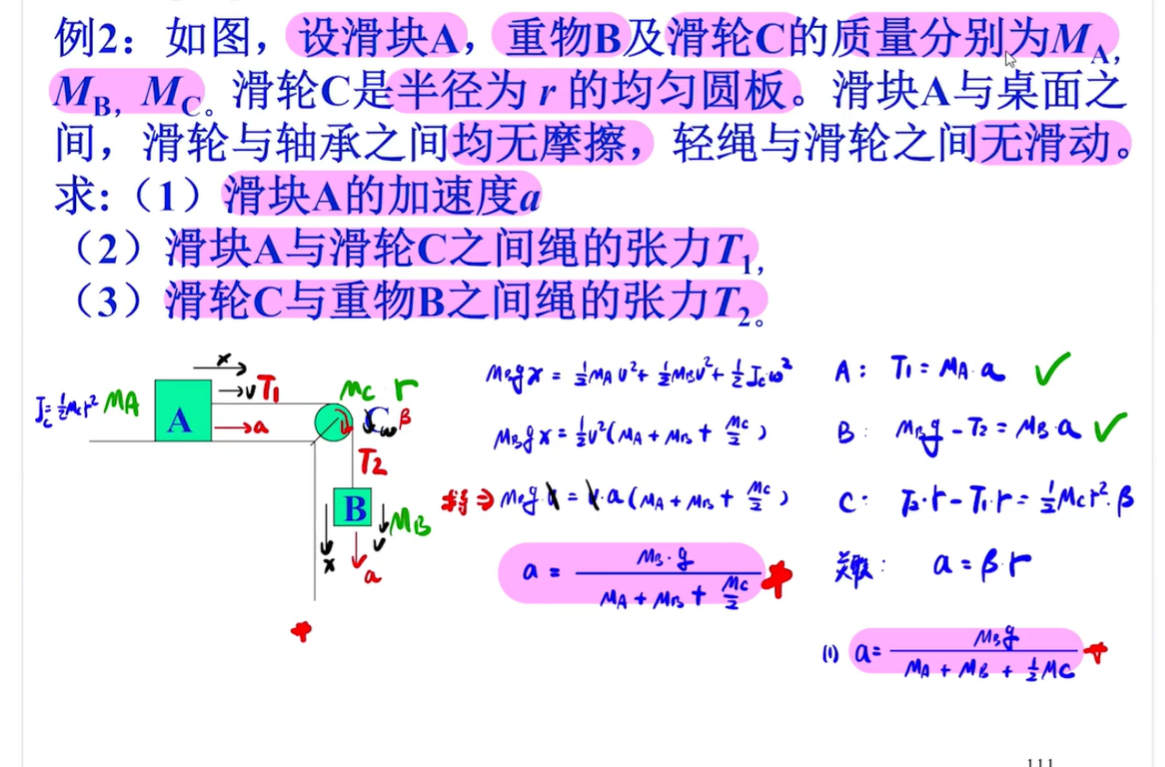 例2：如图，设滑块A，重物B及滑轮C的质量分别为M_A，
M_B，M_C。滑轮C是半径为 r 的均匀圆板。滑块A与桌面之
间，滑轮与轴承之间均无摩擦，轻绳与滑轮之间无滑动。
求:（1）滑块A的加速度a
（2）滑块A与滑轮C之间绳的张力T₁，
（3）滑轮C与重物B之间绳的张力T₂。
J_C = ½M_C r² M_A A
x
v T₁
a
M_C r
C ω β
T₂
B M_B
x v a
M_B g x = ½M_A v² + ½M_B v² + ½J_C ω²
M_B g x = ½v²(M_A + M_B + M_C/2)
⇒ M_B g v = v·a(M_A + M_B + M_C/2)
a = M_B·g / (M_A + M_B + M_C/2)
A: T₁ = M_A·a ✓
B: M_B g - T₂ = M_B·a ✓
C: T₂·r - T₁·r = ½M_C r²·β
关联: a = β·r
(1) a = M_B g / (M_A + M_B + ½M_C)
111